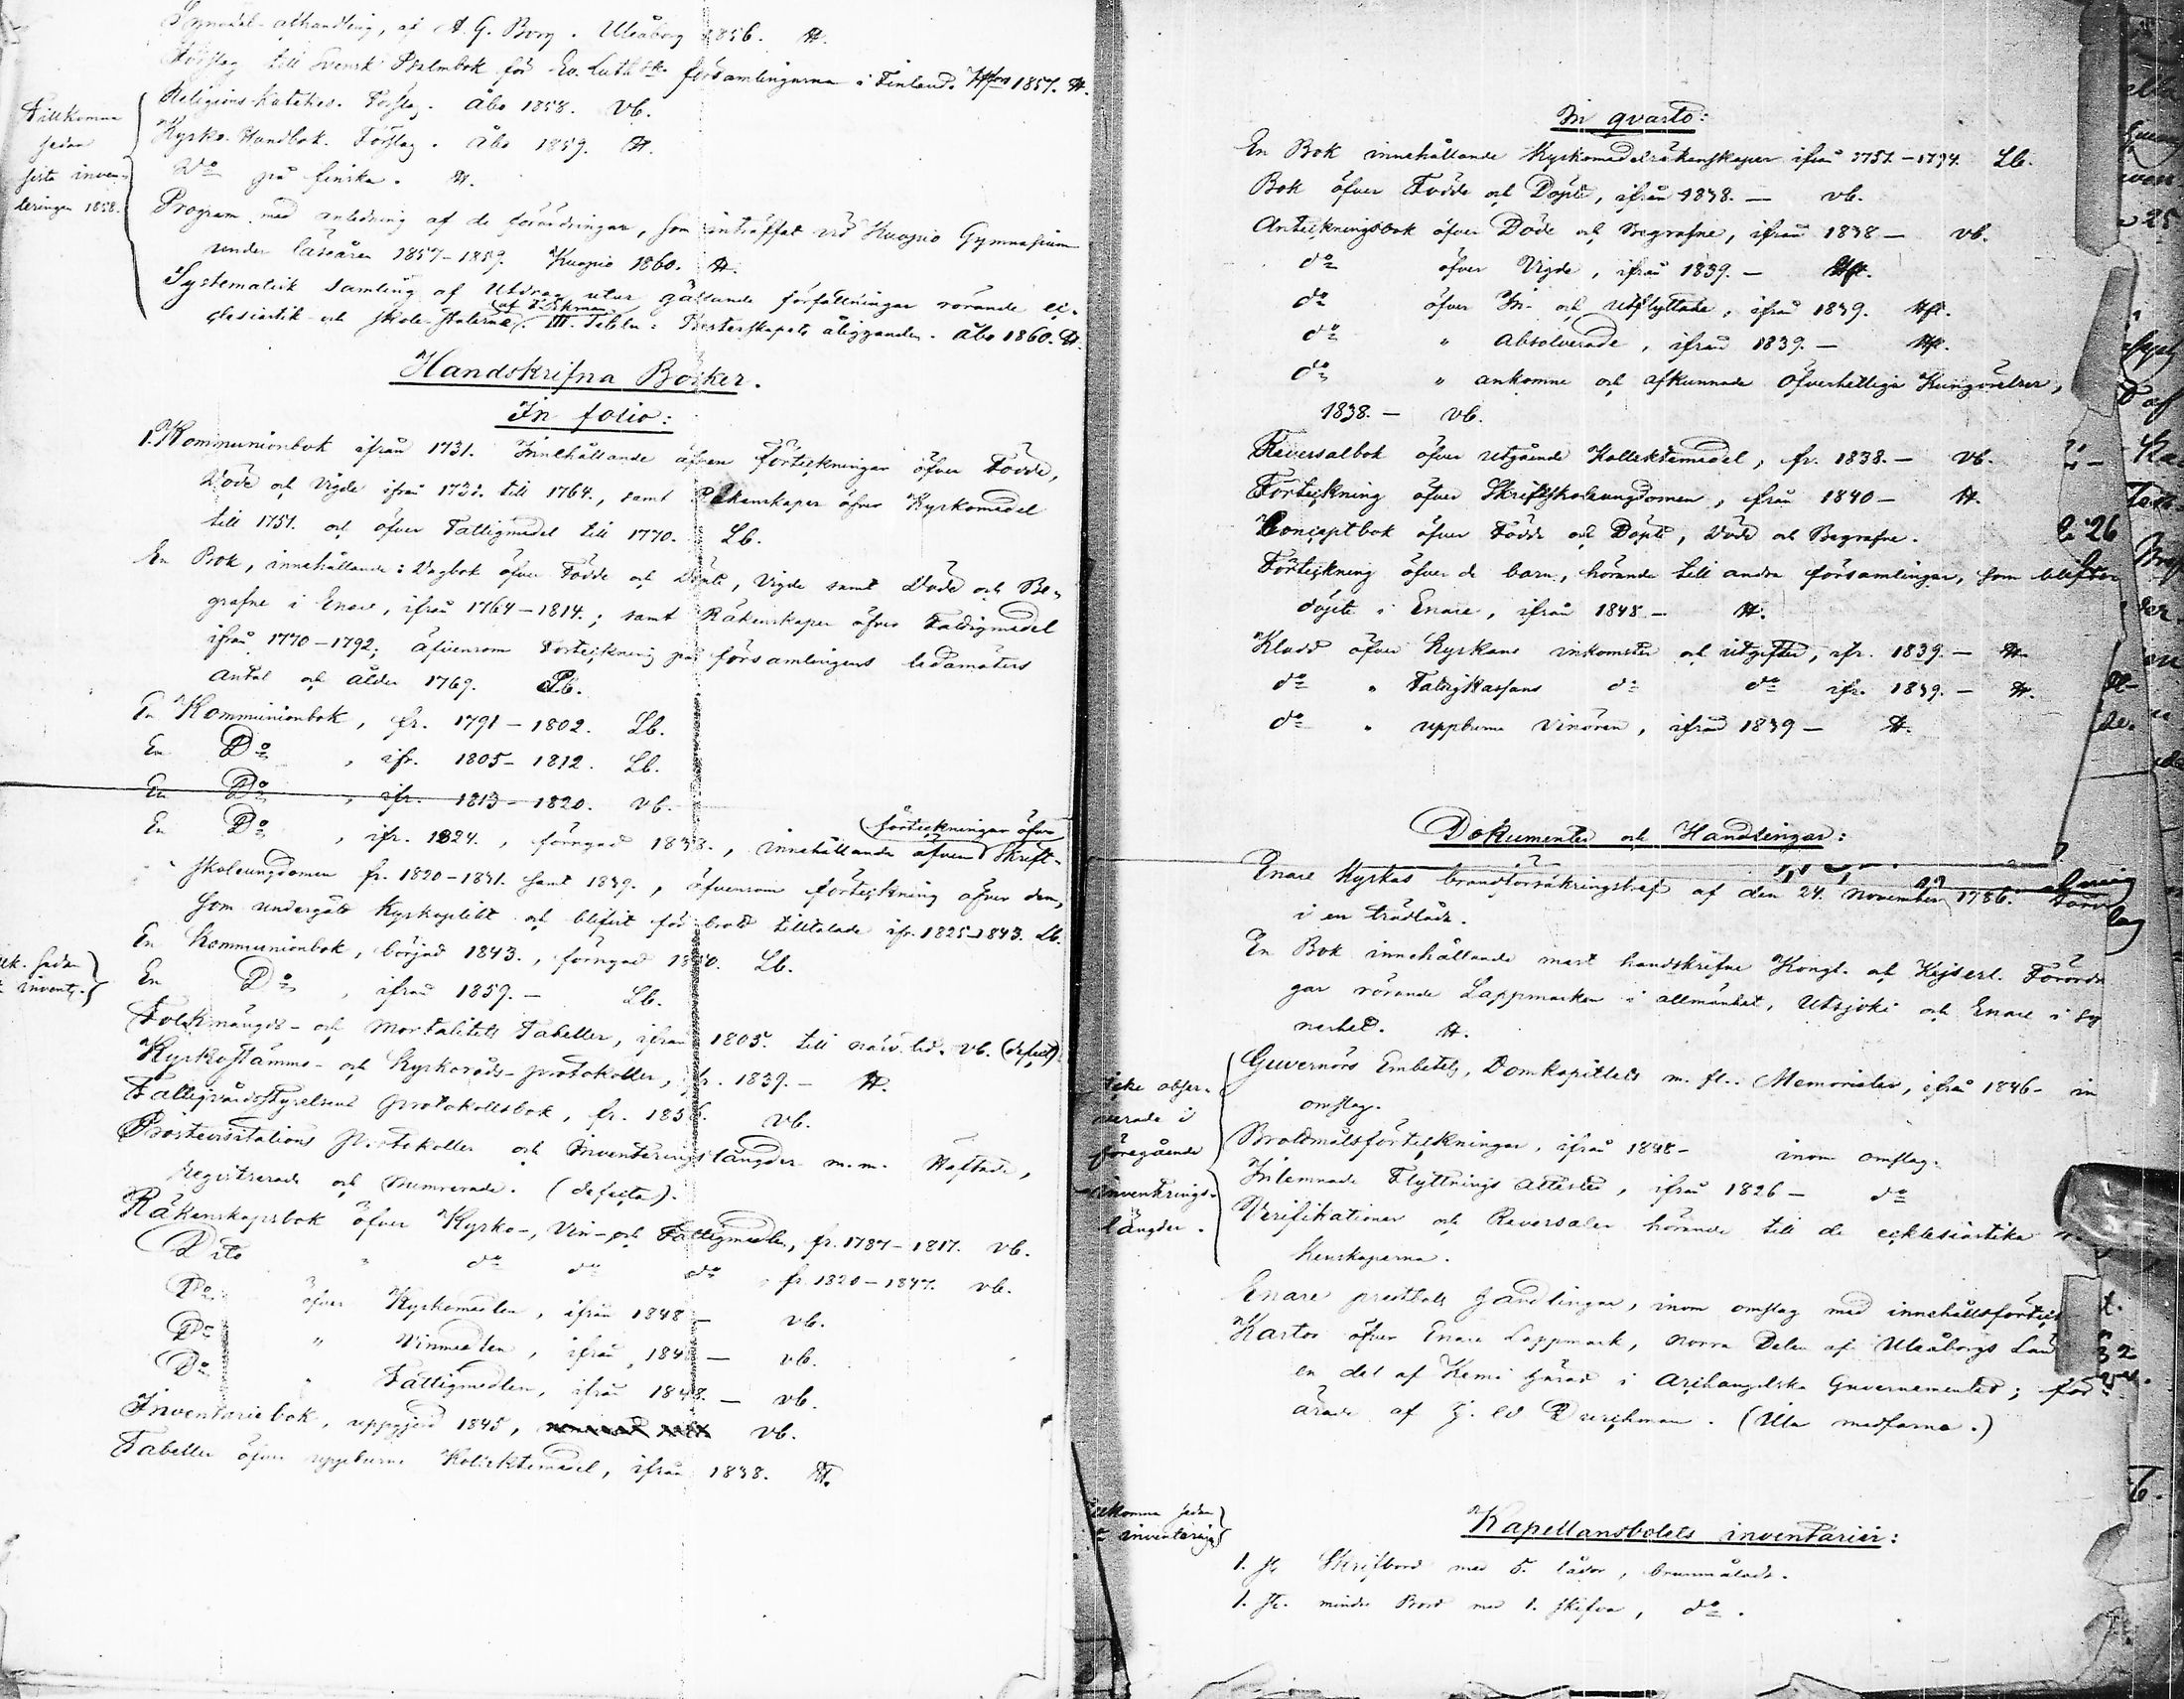 Synodal-afhandling, af A. G. Borg. Uleåborg 1856. H.
Förslag till Svensk Psalmbok för Ev. Luth.ska församlingarna i Finland. H:fors 1857. H.
Religions Kateches. Förslag. Åbo 1858. vb.
Kyrko-Handbok. Förslag. Åbo 1859. H.
Do på finska. H.
Program med anledning af de förändringar, som inträffat vid Kuopio Gymnasium
under läseåren 1857-1859. Kuopio 1860. H.
Systematisk samling af Utdrag utur gällande författningar rörande ec-
clesiastik- och skole-staterne (af Forkman). III. Titeln: Presterskapets åligganden. Åbo 1860. H.
Tillkomne
sedan
sista inven-
teringen 1858.
Handskrifna Böcker.
In folio:
1. Kommunionbok ifrån 1731. Innehållande äfven förteckningar öfver Födde,
Döde och Vigde ifrån 1732. till 1764., samt Räkenskaper öfver Kyrkomedel
till 1751. och öfver Fattigmedel till 1770. Lb.
En Bok, innehållande: Dagbok öfver Födde och Döpte, Vigde samt Döde och Be-
grafne i Enare, ifrån 1764-1814.; samt Räkenskaper öfver Fattigmedel
ifrån 1770-1792; äfvensom Förteckning på församlingens ledamöters
antal och ålder 1769. Lb.
En Kommunionbok, fr. 1791-1802. Lb.
En Do , ifr. 1805-1812. Lb.
En Do , ifr. 1813-1820. vb.
En Do , ifr. 1824., förnyad 1838., innehållande äfven (förteckningar öfver) Skrift-
skoleungdomen fr. 1820-1831. samt 1839., äfvensom förteckning öfver dem,
som undergått Kyrkoplikt och blifvit för brott tilltalade ifr. 1825-1843. Lb.
En Kommunionbok, börjad 1843., förnyad 1850. Lb.
En Do , ifrån 1859.- Lb.
sedan
invent.
Folkmängds- och Mortalitets Tabeller, ifrån 1805. till närv. tid. vb. (defect)
Kyrkostämmo- och Kyrkoråds-protokoller, fr. 1839.- H.
Fattigvårdsstyrelsens protokollsbok, fr. 1856. vb.
Prostvisitations protokoller och Inventeringslängder m.m. Häftade,
registrerade och numrerade. (defecta).
Räkenskapsbok öfver Kyrko-, Vin- och Fattigmedlen, fr. 1787-1817. vb.
Dito " do do do , fr. 1820-1847. vb.
Do öfver Kyrkomedlen, ifrån 1848- vb.
Do " Vinmedlen, ifrån 1848- vb.
Do " Fattigmedlen, ifrån 1848.- vb.
Inventariebok, uppgjord 1845, vb.
Tabeller öfver uppburne Kollektmedel, ifrån 1838. H.
In qvarto:
En Bok innehållande Kyrkomedelsräkenskaper ifrån 1751.-1794. Lb.
Bok öfver Födde och Döpte, ifrån 1838.- vb.
Anteckningsbok öfver Döde och Begrafne, ifrån 1838- vb.
do öfver Vigde, ifrån 1839.- Hft.
do öfver In- och utflyttade, ifrån 1839. Hft.
do " Absolverade, ifrån 1839.- Hft.
do " ankomne och afkunnade Öfverhetliga Kungörelser,
1838.- vb.
Reversalbok öfver utgående Kollektemedel, fr. 1838.- vb.
Förteckning öfver Skriftskoleungdomen, ifrån 1840- H.
Conceptbok öfver Födde och Döpte, Döde och Begrafne.
Förteckning öfver de barn, hörande till andra församlingar, som blifvit
döpte i Enare, ifrån 1848- H.
Kladd öfver Kyrkans inkomster och utgifter, ifr. 1839.- H.
do " Fattigkassans do do ifr. 1839.- H.
do " uppburne vinören, ifrån 1839- H.
Dokumenter och Handlingar:
Enare Kyrkas brandförsäkringsbref af den 24. November 1786.
i en trädlåda.
En Bok innehållande mest handskrifne Kongl. och Kejserl. Förordn
gar rörande Lappmarken i allmänhet, Utsjoki och Enare i sy
nerhet. H.
Guvernörs Embetets, Domkapitlets m. fl. Memorialer, ifrån 1846- in
omslag.
Brottmålsförteckningar, ifrån 1848- inom omslag.
Inlemnade Flyttnings Attester, ifrån 1826- do
Verifikationer och Reversaler hörande till de ecklesiastika
kenskaperna.
icke obser-
verade i
föregående
inventerings-
längder.
Enare prestbols handlingar, inom omslag med innehållsförteck
Kartor öfver Enare Lappmark, norra Delen af Uleåborgs Län
en del af Kemi härad i Archangelska Guvernementet; för
ärade af
(Illa medfarna.)
Kapellansbolets inventarier:
1. st. Skrifbord med 5. lådor, brunmålade.
1. st. mindre Bord med 1. skifva, do.
komne sedan
inventering